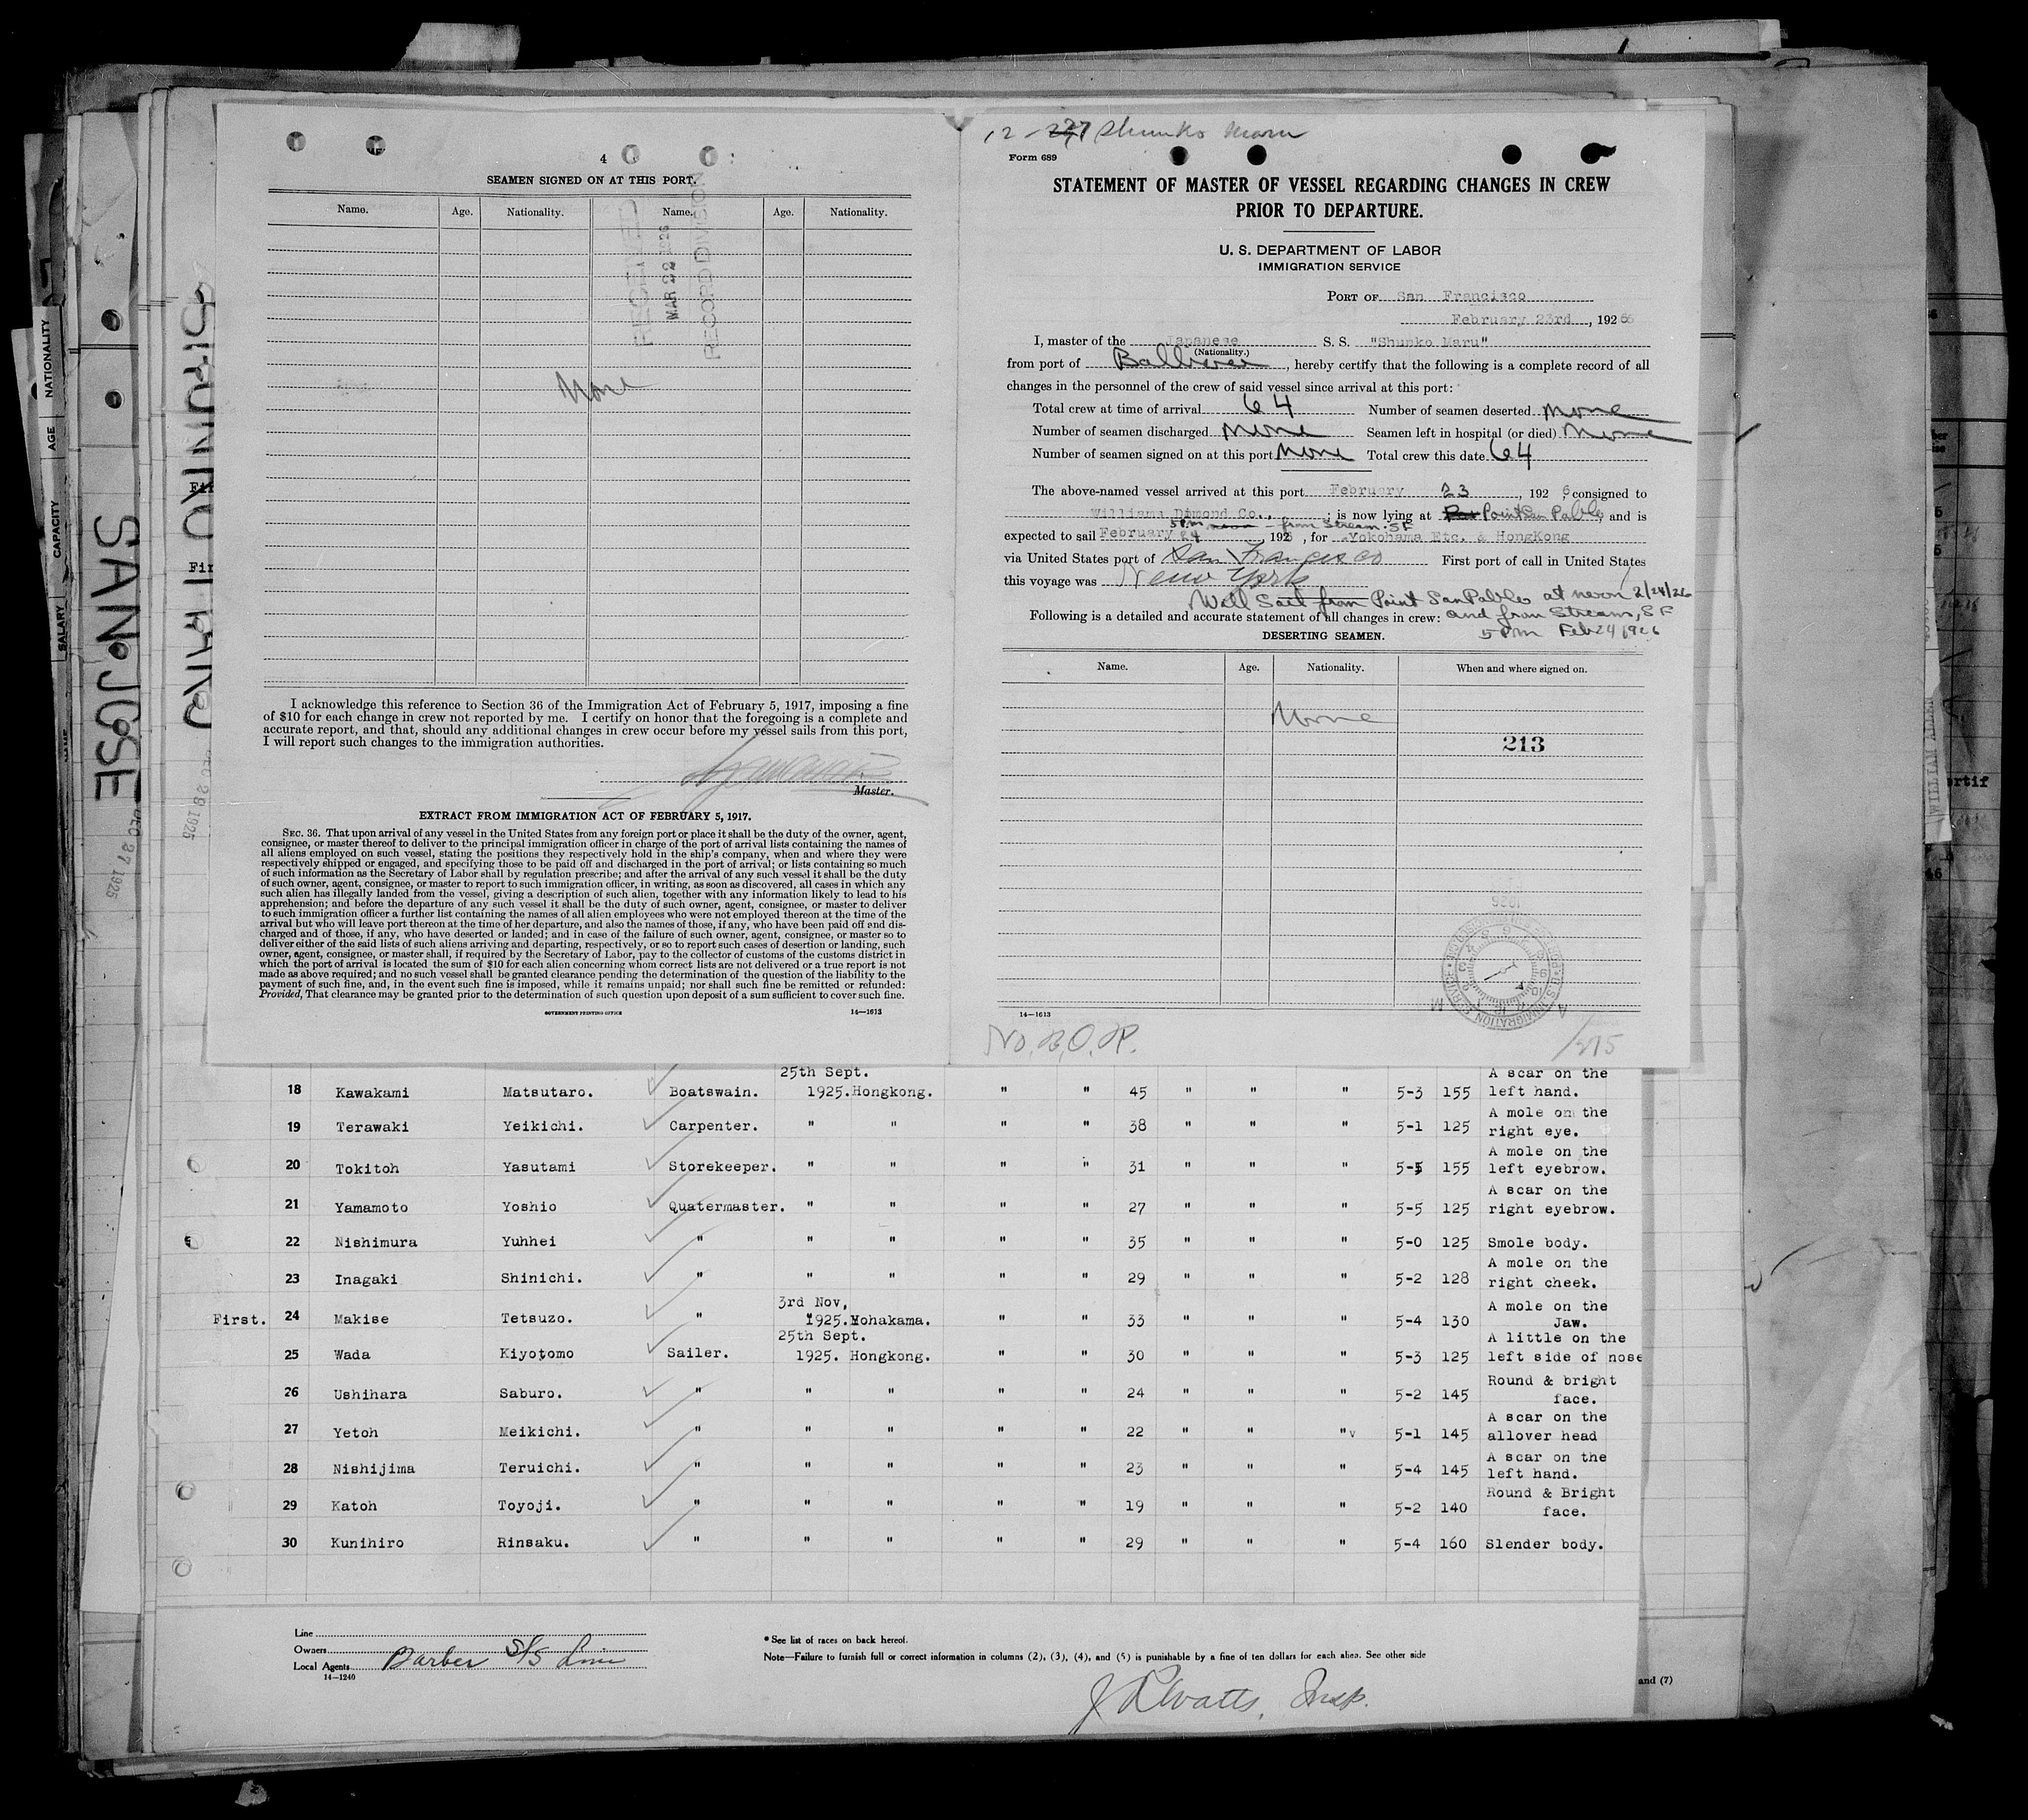 4
SEAMEN SIGNED ON AT THIS PORT.
Name. Age. Nationality. Name. Age. Nationality.
RECEIVED
MAR 22 1926
RECORD DIVISION
None
I acknowledge this reference to Section 36 of the Immigration Act of February 5, 1917, imposing a fine
of $10 for each change in crew not reported by me. I certify on honor that the foregoing is a complete and
accurate report, and that, should any additional changes in crew occur before my vessel sails from this port,
I will report such changes to the immigration authorities.
Master.
EXTRACT FROM IMMIGRATION ACT OF FEBRUARY 5, 1917.
SEC. 36. That upon arrival of any vessel in the United States from any foreign port or place it shall be the duty of the owner, agent,
consignee, or master thereof to deliver to the principal immigration officer in charge of the port of arrival lists containing the names of
all aliens employed on such vessel, stating the positions they respectively hold in the ship's company, when and where they were
respectively shipped or engaged, and specifying those to be paid off and discharged in the port of arrival; or lists containing so much
of such information as the Secretary of Labor shall by regulation prescribe; and after the arrival of any such vessel it shall be the duty
of such owner, agent, consignee, or master to report to such immigration officer, in writing, as soon as discovered, all cases in which any
such alien has illegally landed from the vessel, giving a description of such alien, together with any information likely to lead to his
apprehension; and before the departure of any such vessel it shall be the duty of such owner, agent, consignee, or master to deliver
to such immigration officer a further list containing the names of all alien employees who were not employed thereon at the time of the
arrival but who will leave port thereon at the time of her departure, and also the names of those, if any, who have been paid off and dis-
charged and of those, if any, who have deserted or landed; and in case of the failure of such owner, agent, consignee, or master so to
deliver either of the said lists of such aliens arriving and departing, respectively, or so to report such cases of desertion or landing, such
owner, agent, consignee, or master shall, if required by the Secretary of Labor, pay to the collector of customs of the customs district in
which the port of arrival is located the sum of $10 for each alien concerning whom correct lists are not delivered or a true report is not
made as above required; and no such vessel shall be granted clearance pending the determination of the question of the liability to the
payment of such fine, and, in the event such fine is imposed, while it remains unpaid; nor shall such fine be remitted or refunded:
Provided, That clearance may be granted prior to the determination of such question upon deposit of a sum sufficient to cover such fine.
GOVERNMENT PRINTING OFFICE 14—1613
12-27 Shunko Maru
Form 689
STATEMENT OF MASTER OF VESSEL REGARDING CHANGES IN CREW
PRIOR TO DEPARTURE.
U. S. DEPARTMENT OF LABOR
IMMIGRATION SERVICE
PORT OF San Francisco
February 23rd, 1926
I, master of the Japanese S. S. "Shunko Maru"
(Nationality.)
from port of Balboa, hereby certify that the following is a complete record of all
changes in the personnel of the crew of said vessel since arrival at this port:
Total crew at time of arrival 64 Number of seamen deserted None
Number of seamen discharged None Seamen left in hospital (or died) None
Number of seamen signed on at this port None Total crew this date 64
The above-named vessel arrived at this port February 23, 1926, consigned to
Williams Dimond Co., ; is now lying at Point San Pablo, and is
5 Pm noon - from Stream. SF
expected to sail February 24, 1926, for Yokohama Etc. & HongKong
via United States port of San Francisco First port of call in United States
this voyage was New York
Will Sail from Point San Pablo at noon 2/24/26
Following is a detailed and accurate statement of all changes in crew: and from Stream, SF
5 Pm Feb 24 1926
DESERTING SEAMEN.
Name. Age. Nationality. When and where signed on.
None
213
14—1613
No. B.O.R.
25th Sept. A scar on the
18 Kawakami Matsutaro. Boatswain. 1925. Hongkong. " " 45 " " " 5-3 155 left hand.
A mole on the
19 Terawaki Yeikichi. Carpenter. " " " " 38 " " " 5-1 125 right eye.
A mole on the
20 Tokitoh Yasutami Storekeeper. " " " " 31 " " " 5-5 155 left eyebrow.
A scar on the
21 Yamamoto Yoshio Quatermaster. " " " " 27 " " " 5-5 125 right eyebrow.
22 Nishimura Yuhhei " " " " " 35 " " " 5-0 125 Smole body.
A mole on the
23 Inagaki Shinichi. " " " " " 29 " " " 5-2 128 right cheek.
3rd Nov, A mole on the
First. 24 Makise Tetsuzo. " 1925. Yohakama. " " 33 " " " 5-4 130 Jaw.
25th Sept. A little on the
25 Wada Kiyotomo Sailer. 1925. Hongkong. " " 30 " " " 5-3 125 left side of nose
Round & bright
26 Ushihara Saburo. " " " " " 24 " " " 5-2 145 face.
A scar on the
27 Yetoh Meikichi. " " " " " 22 " " "v 5-1 145 allover head
A scar on the
28 Nishijima Teruichi. " " " " " 23 " " " 5-4 145 left hand.
Round & Bright
29 Katoh Toyoji. " " " " " 19 " " " 5-2 140 face.
30 Kunihiro Rinsaku. " " " " " 29 " " " 5-4 160 Slender body.
Line
Owners
Local Agents Barber S/S Line
14—1240
* See list of races on back hereof.
Note—Failure to furnish full or correct information in columns (2), (3), (4), and (5) is punishable by a fine of ten dollars for each alien. See other side
and (7)
J R Watts, Insp.
SAN JOSE
DEC 27 1925
NATIONALITY
AGE
CAPACITY
SALARY